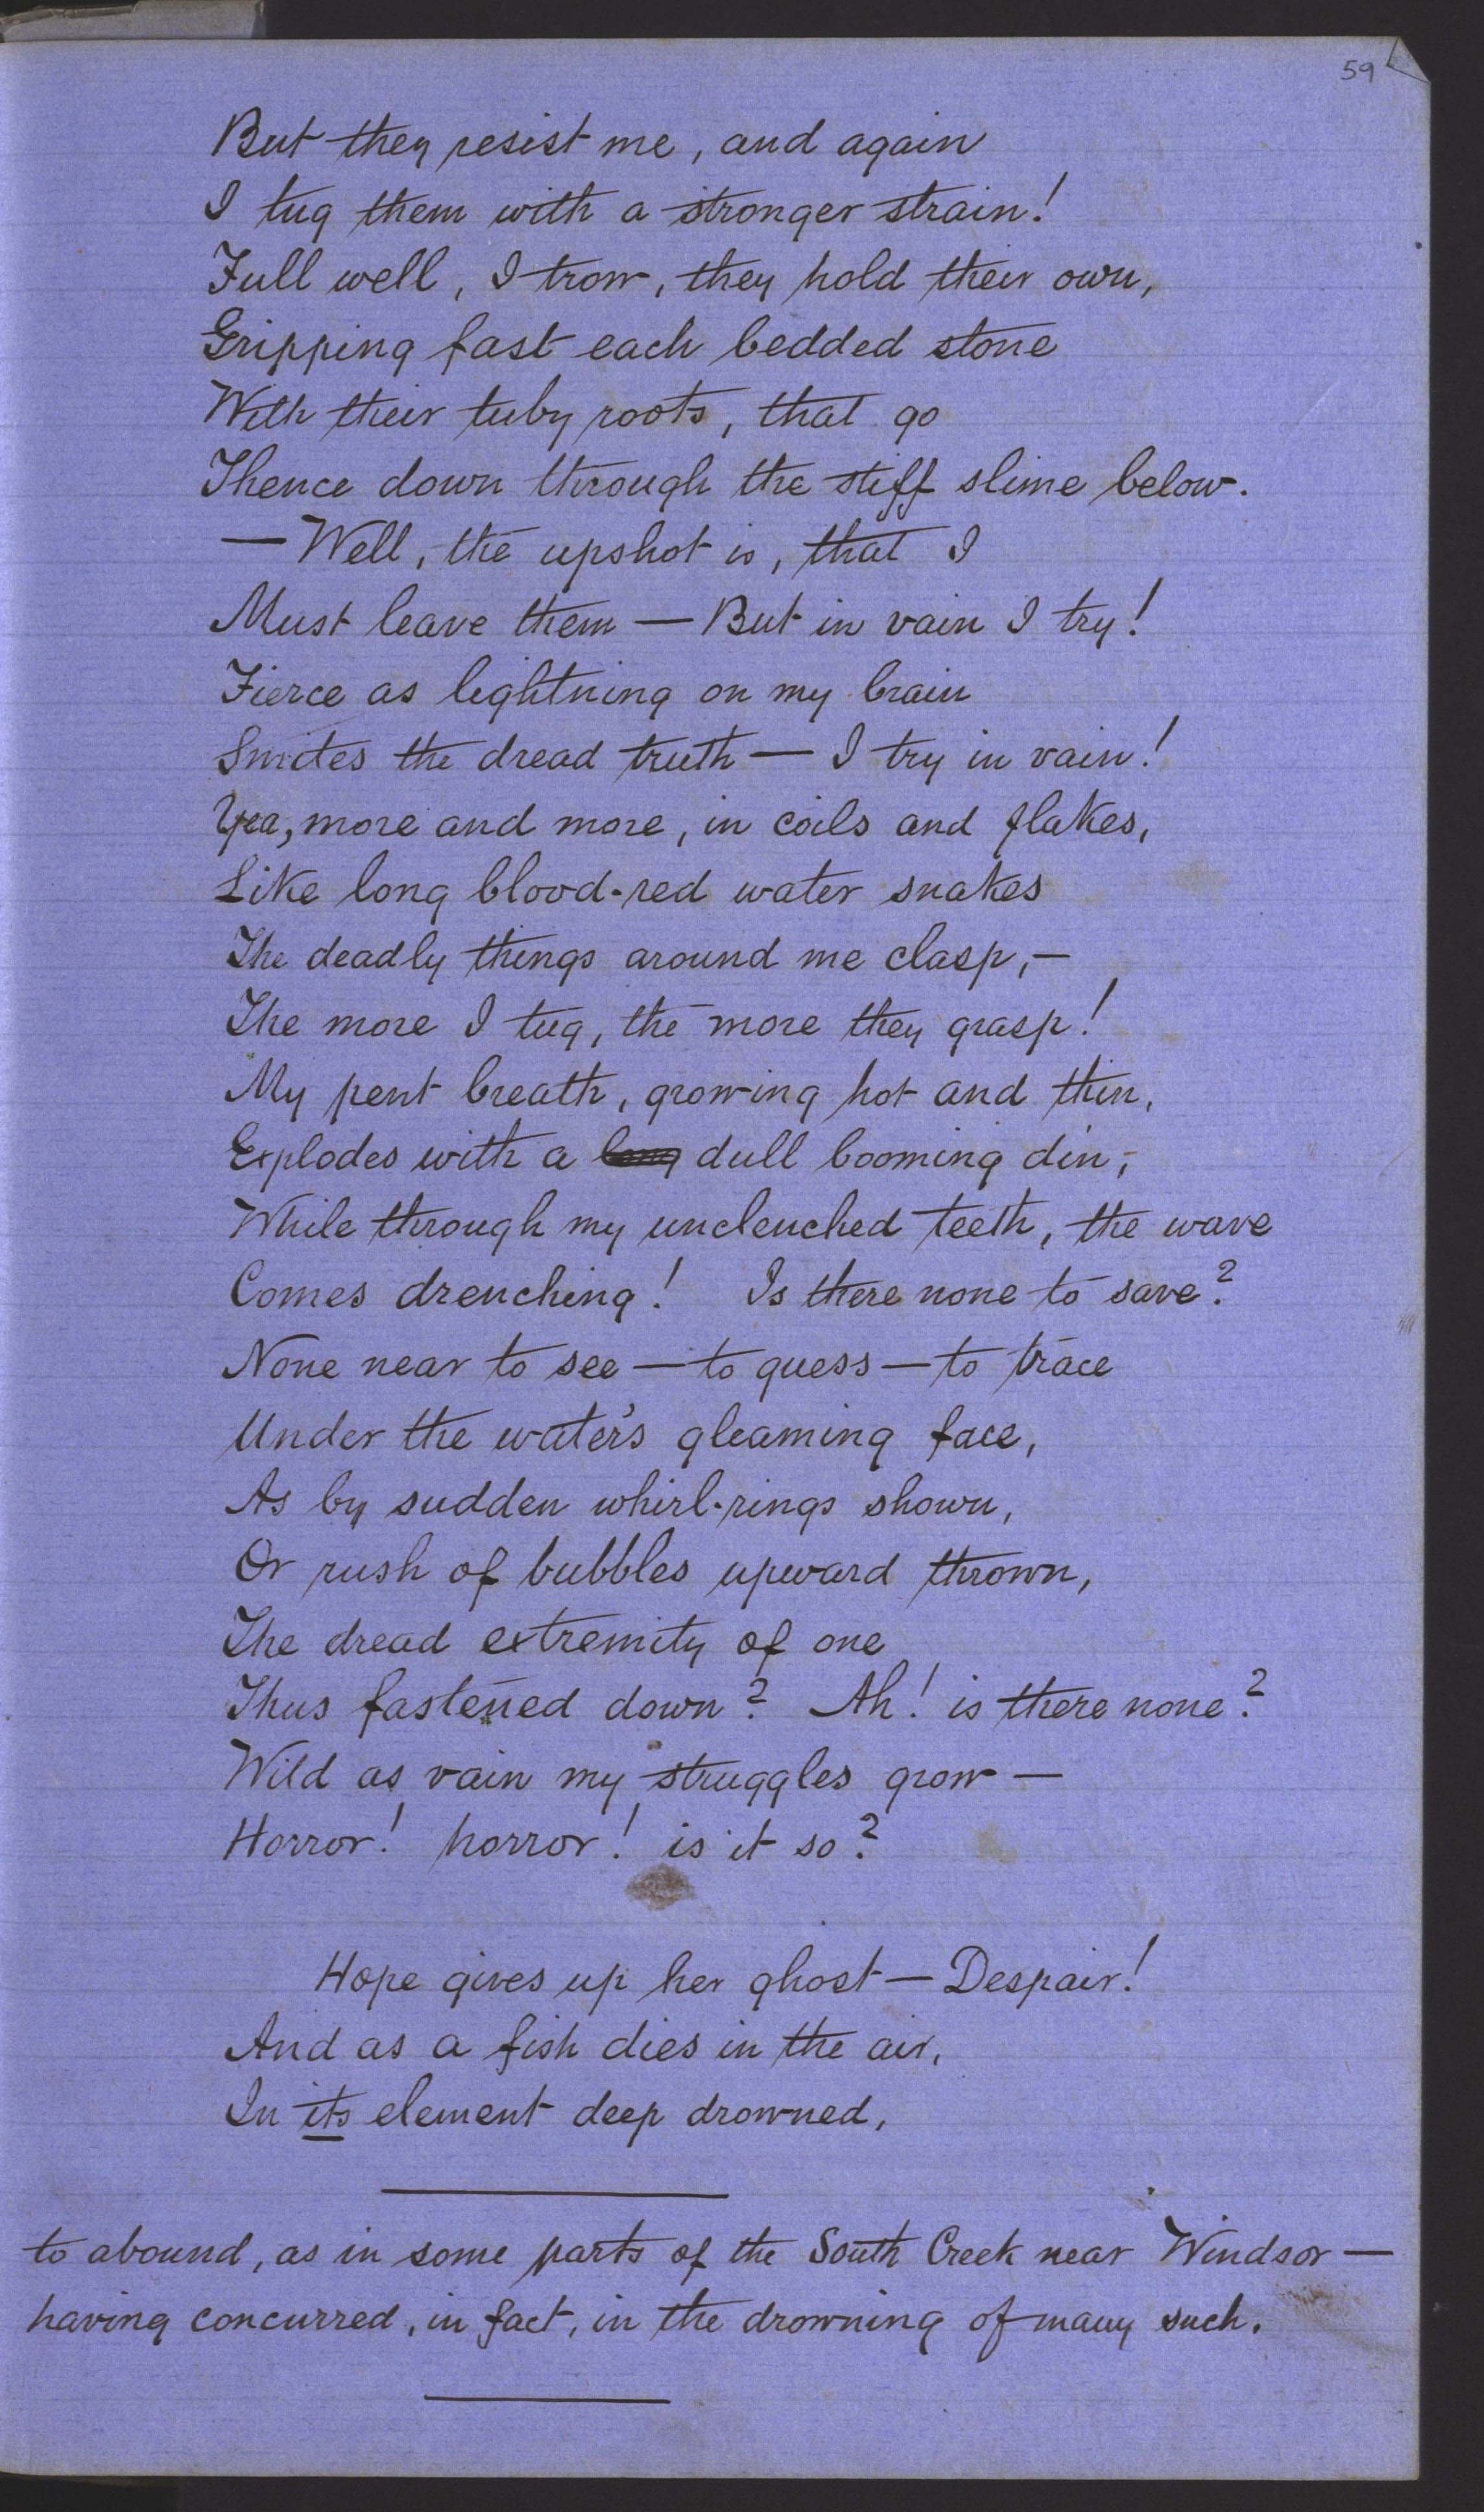 59
But they resist me, and again
I tug them with a stronger strain!
Full well, I trow, they hold their own,
Gripping fast each bedded stone
With their tuby roots, that go
Thence down through the stiff slime below.
— Well, the upshot is, that I
Must leave them — But in vain I try!
Fierce as lightning on my brain
Smites the dread truth — I try in vain!
Yea, more and more, in coils and flakes,
Like long blood-red water snakes
The deadly things around me clasp, —
The more I tug, the more they grasp!
My pent breath, growing hot and thin,
Explodes with a long dull booming din;
While through my unclenched teeth, the wave
Comes drenching! Is there none to save?
None near to see — to guess — to trace
Under the water's gleaming face,
As by sudden whirl-rings shown,
Or rush of bubbles upward thrown,
The dread extremity of one
Thus fastened down? Ah! is there none?
Wild as vain my struggles grow —
Horror! horror! is it so?
Hope gives up her ghost — Despair!
And as a fish dies in the air,
In its element deep drowned,
to abound, as in some parts of the South Creek near Windsor —
having concurred, in fact, in the drowning of many such.